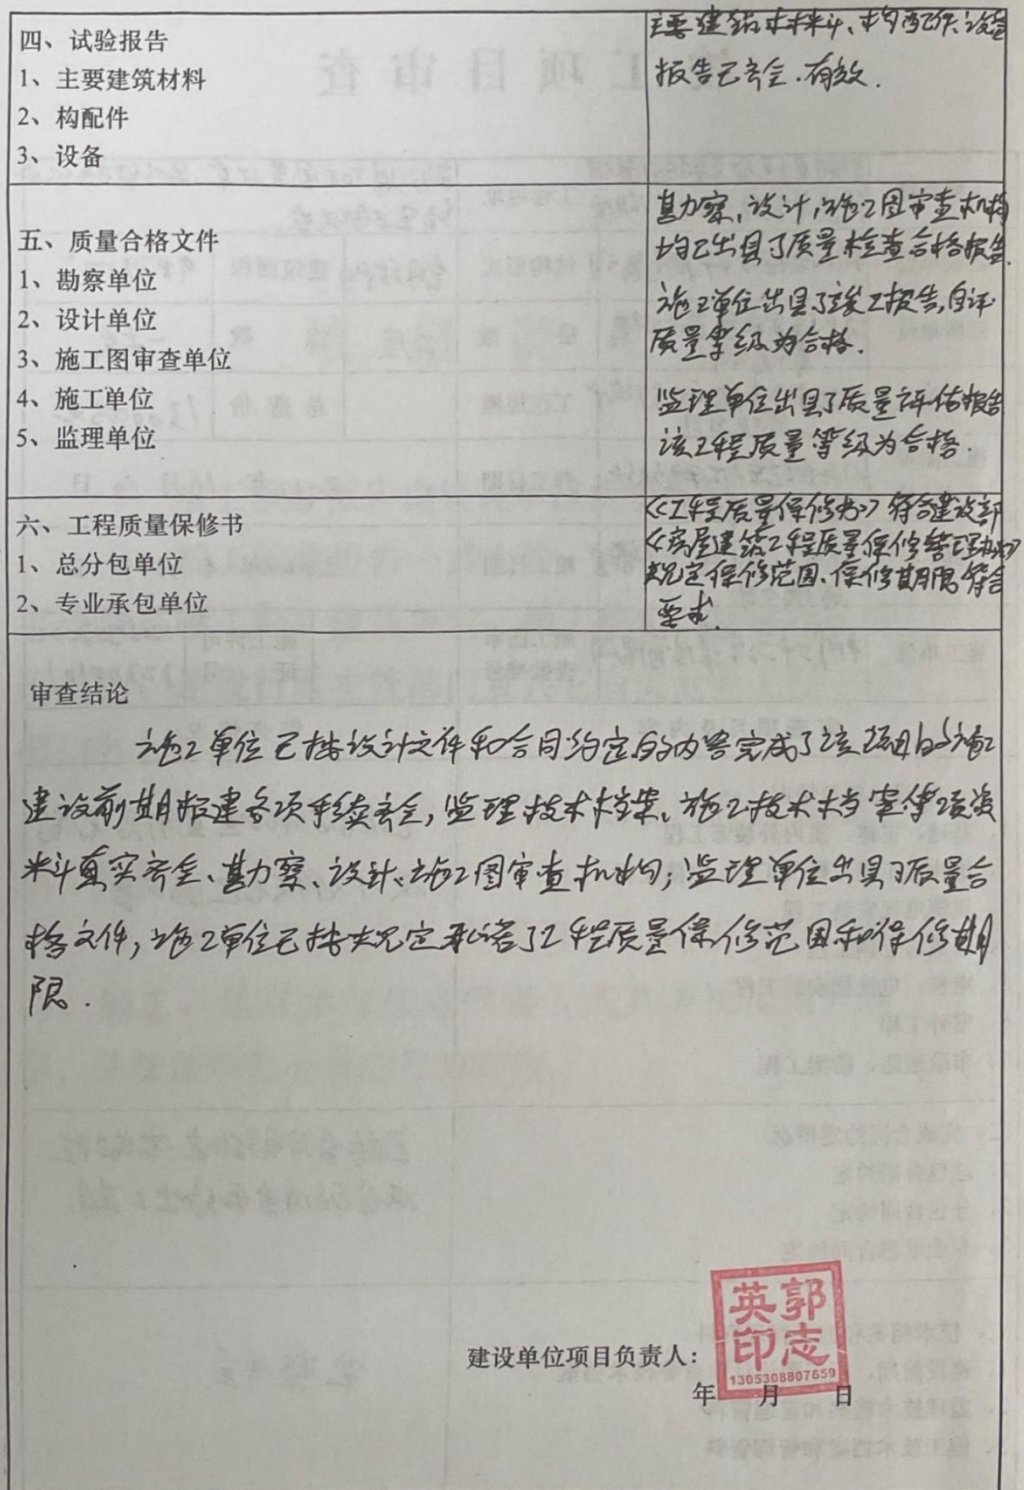 四、试验报告
1、主要建筑材料
2、构配件
3、设备
主要建筑材料、构配件、设备
报告已齐全.有效.
五、质量合格文件
1、勘察单位
2、设计单位
3、施工图审查单位
4、施工单位
5、监理单位
勘察,设计,施工图审查机构
均已出具了质量检查合格报告
施工单位出具了竣工报告,自评
质量等级为合格.
监理单位出具了质量评估报告
该工程质量等级为合格.
六、工程质量保修书
1、总分包单位
2、专业承包单位
《工程质量保修书》符合建设部
《房屋建筑工程质量保修管理办法》
规定保修范围、保修期限符合
要求.
审查结论
施工单位已按设计文件和合同约定的内容完成了该项目的施工
建设前期报建各项手续齐全,监理技术档案、施工技术档案等项资
料真实齐全、勘察、设计、施工图审查机构;监理单位出具了质量合
格文件,施工单位已按规定承诺了工程质量保修范围和保修期
限.
建设单位项目负责人:
郭志英印
1305308807659
年 月 日